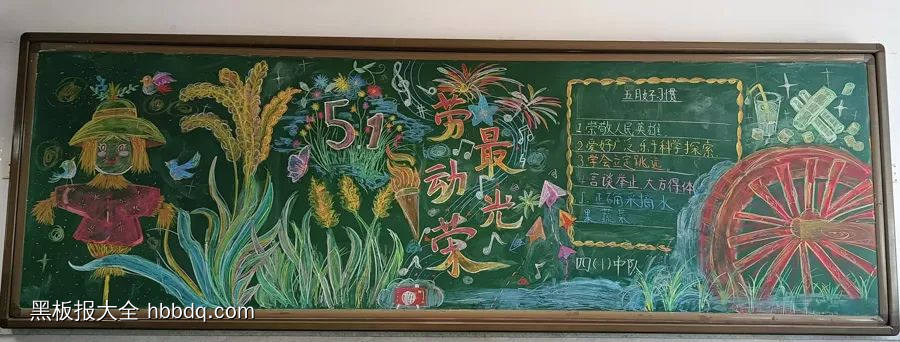 51
劳动最光荣
五月好习惯
1.崇敬人民英雄
2.爱好广泛乐于科学探索
3.学会立定跳远
4.言谈举止大方得体
5.正确采摘水
果蔬菜
四(1)中队
黑板报大全 hbbdq.com